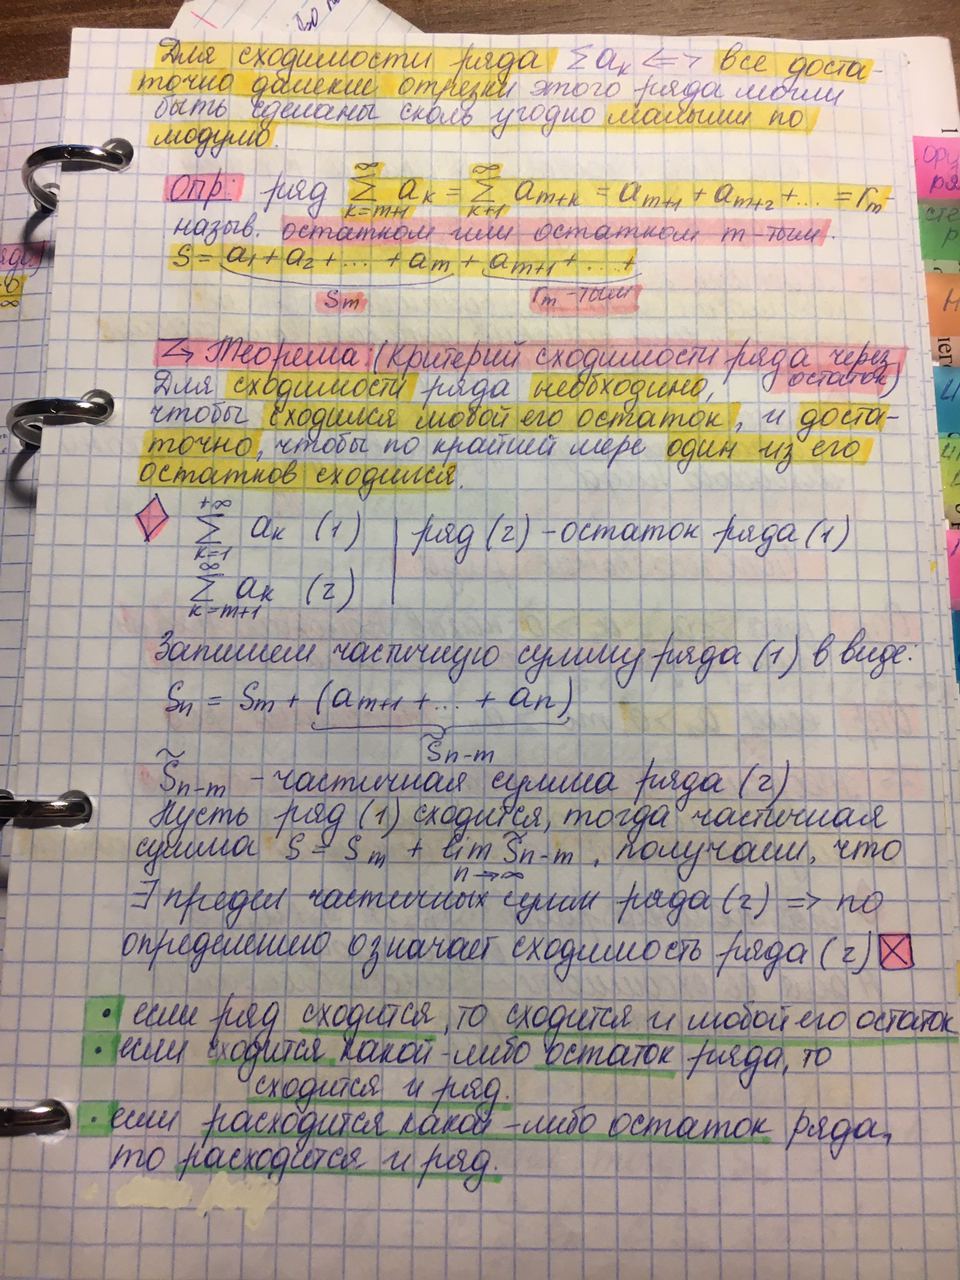 Для сходимости ряда Σaₖ <=> все доста-
точно далекие отрезки этого ряда могли
быть сделаны сколь угодно малыми по
модулю.
Опр: ряд ∞ Σ k=m+1 aₖ = ∞ Σ k+1 aₘ₊ₖ = aₘ₊₁ + aₘ₊₂ + ... = rₘ-
назыв. остатком или остатком m-тым.
S = a₁ + a₂ + ... + aₘ + aₘ₊₁ + ... +
Sₘ rₘ-тым
↳ Теорема: (Критерий сходимости ряда через
остаток)
Для сходимости ряда необходимо,
чтобы сходился любой его остаток, и доста-
точно, чтобы по крайней мере один из его
остатков сходился.
+∞ Σ k=1 aₖ (1) | ряд (2) - остаток ряда (1)
∞ Σ k=m+1 aₖ (2)
Запишем частичную сумму ряда (1) в виде:
Sₙ = Sₘ + (aₘ₊₁ + ... + aₙ)
S̃ₙ₋ₘ
S̃ₙ₋ₘ - частичная сумма ряда (2)
Пусть ряд (1) сходится, тогда частичная
сумма S = Sₘ + lim n→∞ S̃ₙ₋ₘ, получаем, что
∃ предел частичных сумм ряда (2) => по
определению означает сходимость ряда (2)
• если ряд сходится, то сходится и любой его остаток
• если сходится какой-либо остаток ряда, то
сходится и ряд.
• если расходится какой-либо остаток ряда,
то расходится и ряд.